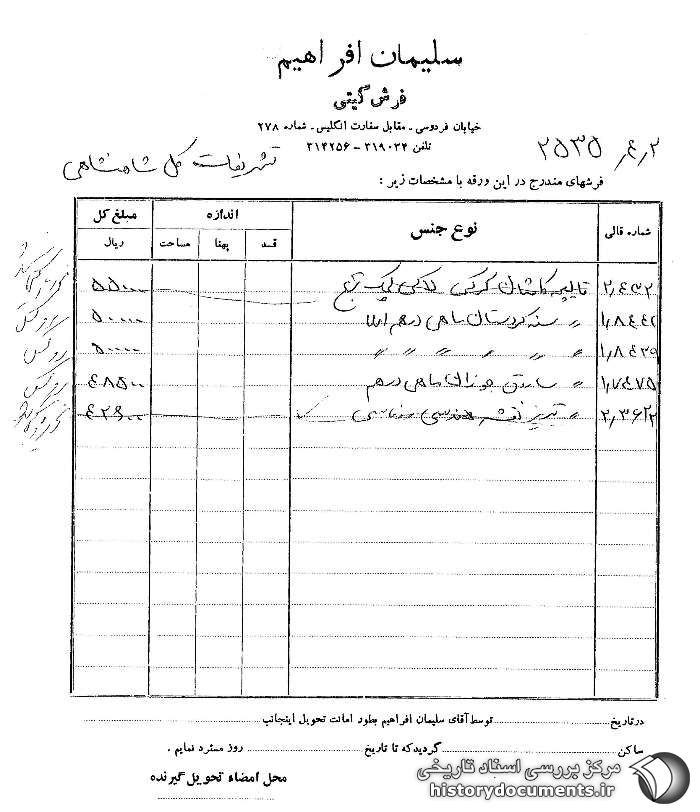 سلیمان افراهیم
فرش گیتی
خیابان فردوسی - مقابل سفارت انگلیس - شماره ۲۷۸
تلفن ۳۱۹۰۲۴ - ۳۱۴۲۵۶
۲ر۴ر ۲۵۳۵
تشریفات کل شاهنشاهی
فرشهای مندرج در این ورقه با مشخصات زیر :
شماره قالی نوع جنس اندازه مبلغ کل
قد پهنا مساحت ریال
۲,۴۳۲ قالیچه کاشان کرکی لاکی ترنج ۵۵۰۰۰
۱,۸۴۴۲ " سنه کردستان ماهی درهم ۵۰۰۰۰
۱,۸۴۳۹ " " " " " ۵۰۰۰۰
۱,۷۴۷۵ " ساروق جوزان ماهی درهم ۴۸۵۰۰
" تبریز نقش هندسی ۴۲۹۰۰
در تاریخ توسط آقای سلیمان افراهیم بطور امانت تحویل اینجانب
ساکن گردید که تا تاریخ روز مسترد نمایم .
محل امضاء تحویل گیرنده
مرکز بررسی اسناد تاریخی
historydocuments.ir